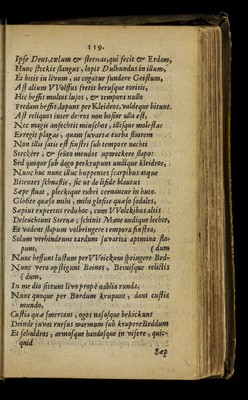 119.
Ipse Deus, cælum & sternas, qui fecit & Erdam,
Hunc steckit slangus, lopit Dulhundus in illum,
Et bitit in livum, ut cogatur fundere Geistum,
Ast alium VVolffus fretit berusque toritis,
Hic hessit multos lusos, & tempora nullo
Fredam hessit, lopunt per Kleidros, valdeque bitunt.
Ast reliquos inter de ros non bosior ulla est,
Nec magis anfechtit minschos, illisque molestat
Erregit plagas, quam suvartæ turba floorem
Non illa satis est sinstri sub tempore nachti
Steckere, & seuos menios upweckere slapo:
Sed quoque sub dago perkrupunt undique kleidros,
Nunc huc nunc illuc huppentes scarpibus atque
Bitentes schnaflis, sic ut de lifide blautus
Sæpe fluat, pleckique rubri cernantur in huso.
Glosite quæso mihi, mihi glosite quæso sodales,
Sæpius expertus reduhoc, cum VVolckibus altis
Deleucheint Sternæ; schinit Mane undique leetse,
Et vadent slapum volbringere tempora finstra,
Solum verhindrunt tardum suvartia agmina sla-
pum, (dum
Nunc hessunt lustum per VVeickum springere Bed-
Nunc vero upstigunt Beinos, Beinisque relictis
(dum,
In medio sitzunt livo propè nablia runda.
Nunc quoque per Bordum krupunt, dant custia
mundo,
Custia quæ smertant, ogos nasosque bekickunt
Deinde javat rursus warmum sub krupere Beddum
Et schuldros, armosque handosque invisere, quic-
quid
Sæp